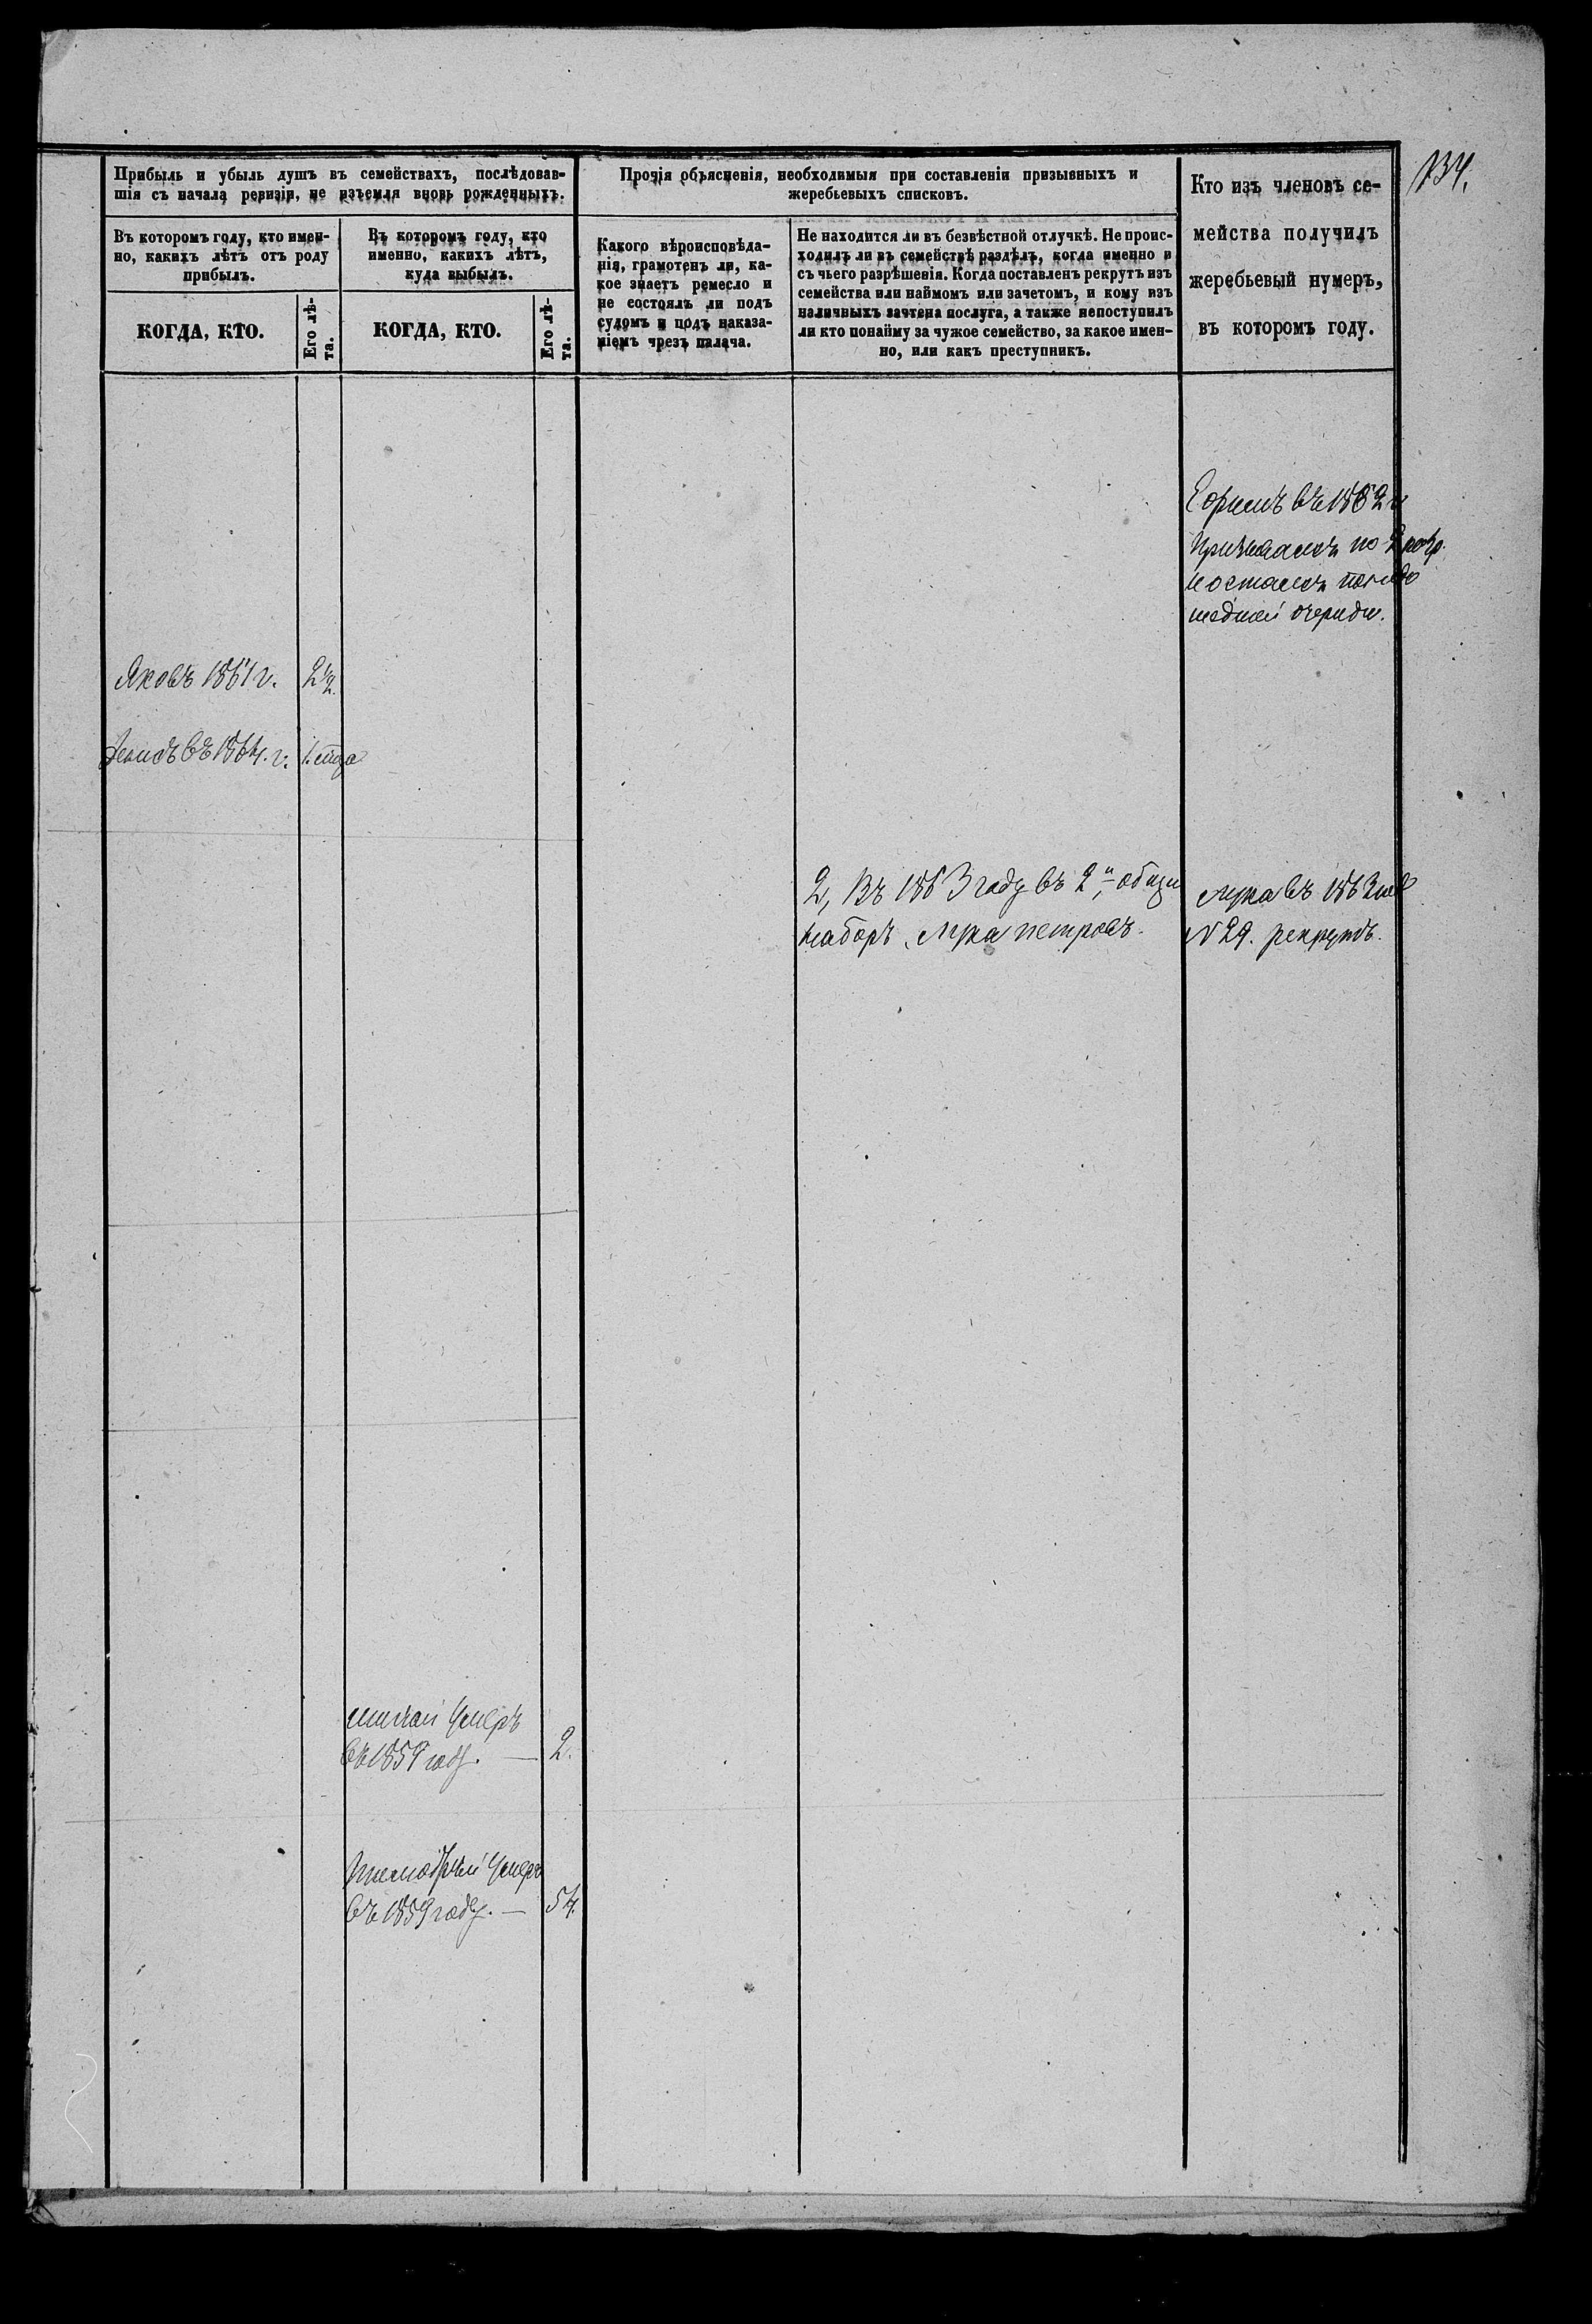 134.
Прибыль и убыль душъ въ семействахъ, послѣдовав-
шія съ начала ревизіи, не изъемля вновь рожденныхъ.
Въ которомъ году, кто имен-
но, какихъ лѣтъ отъ роду
прибылъ.
Въ которомъ году, кто
именно, какихъ лѣтъ,
куда выбылъ.
КОГДА, КТО.
Его лѣ-
та.
КОГДА, КТО.
Его лѣ-
та.
Прочія объясненія, необходимыя при составленіи призывныхъ и
жеребьевыхъ списковъ.
Какого вѣроисповѣда-
нія, грамотенъ ли, ка-
кое знаетъ ремесло и
не состоялъ ли подъ
судомъ и подъ наказа-
ніемъ чрезъ палача.
Не находится ли въ безвѣстной отлучкѣ. Не проис-
ходилъ ли въ семействѣ раздѣлъ, когда именно и
съ чьего разрѣшенія. Когда поставленъ рекрутъ изъ
семейства или наймомъ или зачетомъ, и кому изъ
наличныхъ зачтена послуга, а также непоступилъ
ли кто понайму за чужое семейство, за какое имен-
но, или какъ преступникъ.
Кто изъ членовъ се-
мейства получилъ
жеребьевый нумеръ,
въ которомъ году.
въ 1862 г
по 2
очереди.
Яковъ 1861 г. 2 1/2.
въ 1864. г. 1.
2, Въ 1863 году въ 2й общи
наборъ Лука петровъ.
Лука въ 1863
N 29. рекрутъ.
умеръ
въ 1859 году. — 2.
умеръ
въ 1859 году. — 54.